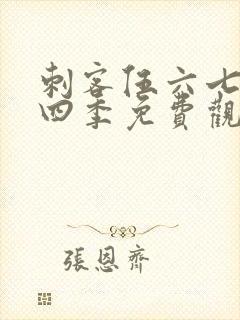 刺客伍六七
四季免費觀
張恩齊